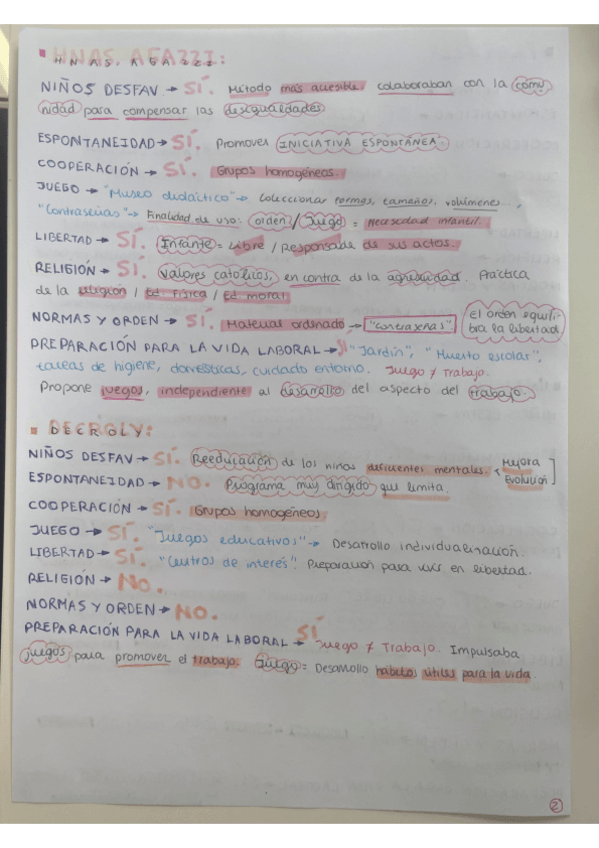 HNAS. AGAZZI:
NIÑOS DESFAV → SÍ. Método más accesible. colaboraban con la comu
nidad para compensar las desigualdades
ESPONTANEIDAD → SÍ. Promover INICIATIVA ESPONTÁNEA
COOPERACIÓN → SÍ. Grupos homogéneos.
JUEGO → "Museo didáctico" → Coleccionar formas, tamaños, volúmenes...,
"Contraseñas" → Finalidad de uso: orden / Juego = Necesidad infantil.
LIBERTAD → SÍ. Infante = Libre / Responsable de sus actos.
RELIGIÓN → SÍ. Valores católicos, en contra de la agresividad. Práctica
de la religión / Ed. Física / Ed. moral
NORMAS Y ORDEN → SÍ. Material ordenado → "Contraseñas" El orden equili
bra la libertad
PREPARACIÓN PARA LA VIDA LABORAL → SÍ "Jardín", "Huerto escolar",
tareas de higiene, domésticas, cuidado entorno. Juego ≠ Trabajo.
Propone juegos, independiente al desarrollo del aspecto del trabajo.
DECROLY:
NIÑOS DESFAV → SÍ. Reeducación de los niños deficientes mentales. < Mejora
Evolución ]
ESPONTANEIDAD → NO. Programa muy dirigido que limita.
COOPERACIÓN → SÍ. Grupos homogéneos
JUEGO → SÍ. "Juegos educativos" → Desarrollo individualización
LIBERTAD → SÍ. "Centros de interés". Preparación para vivir en libertad.
RELIGIÓN → No.
NORMAS Y ORDEN → NO.
PREPARACIÓN PARA LA VIDA LABORAL → SÍ Juego ≠ Trabajo. Impulsaba
juegos para promover el trabajo. Juego = Desarrollo hábitos útiles para la vida.
2